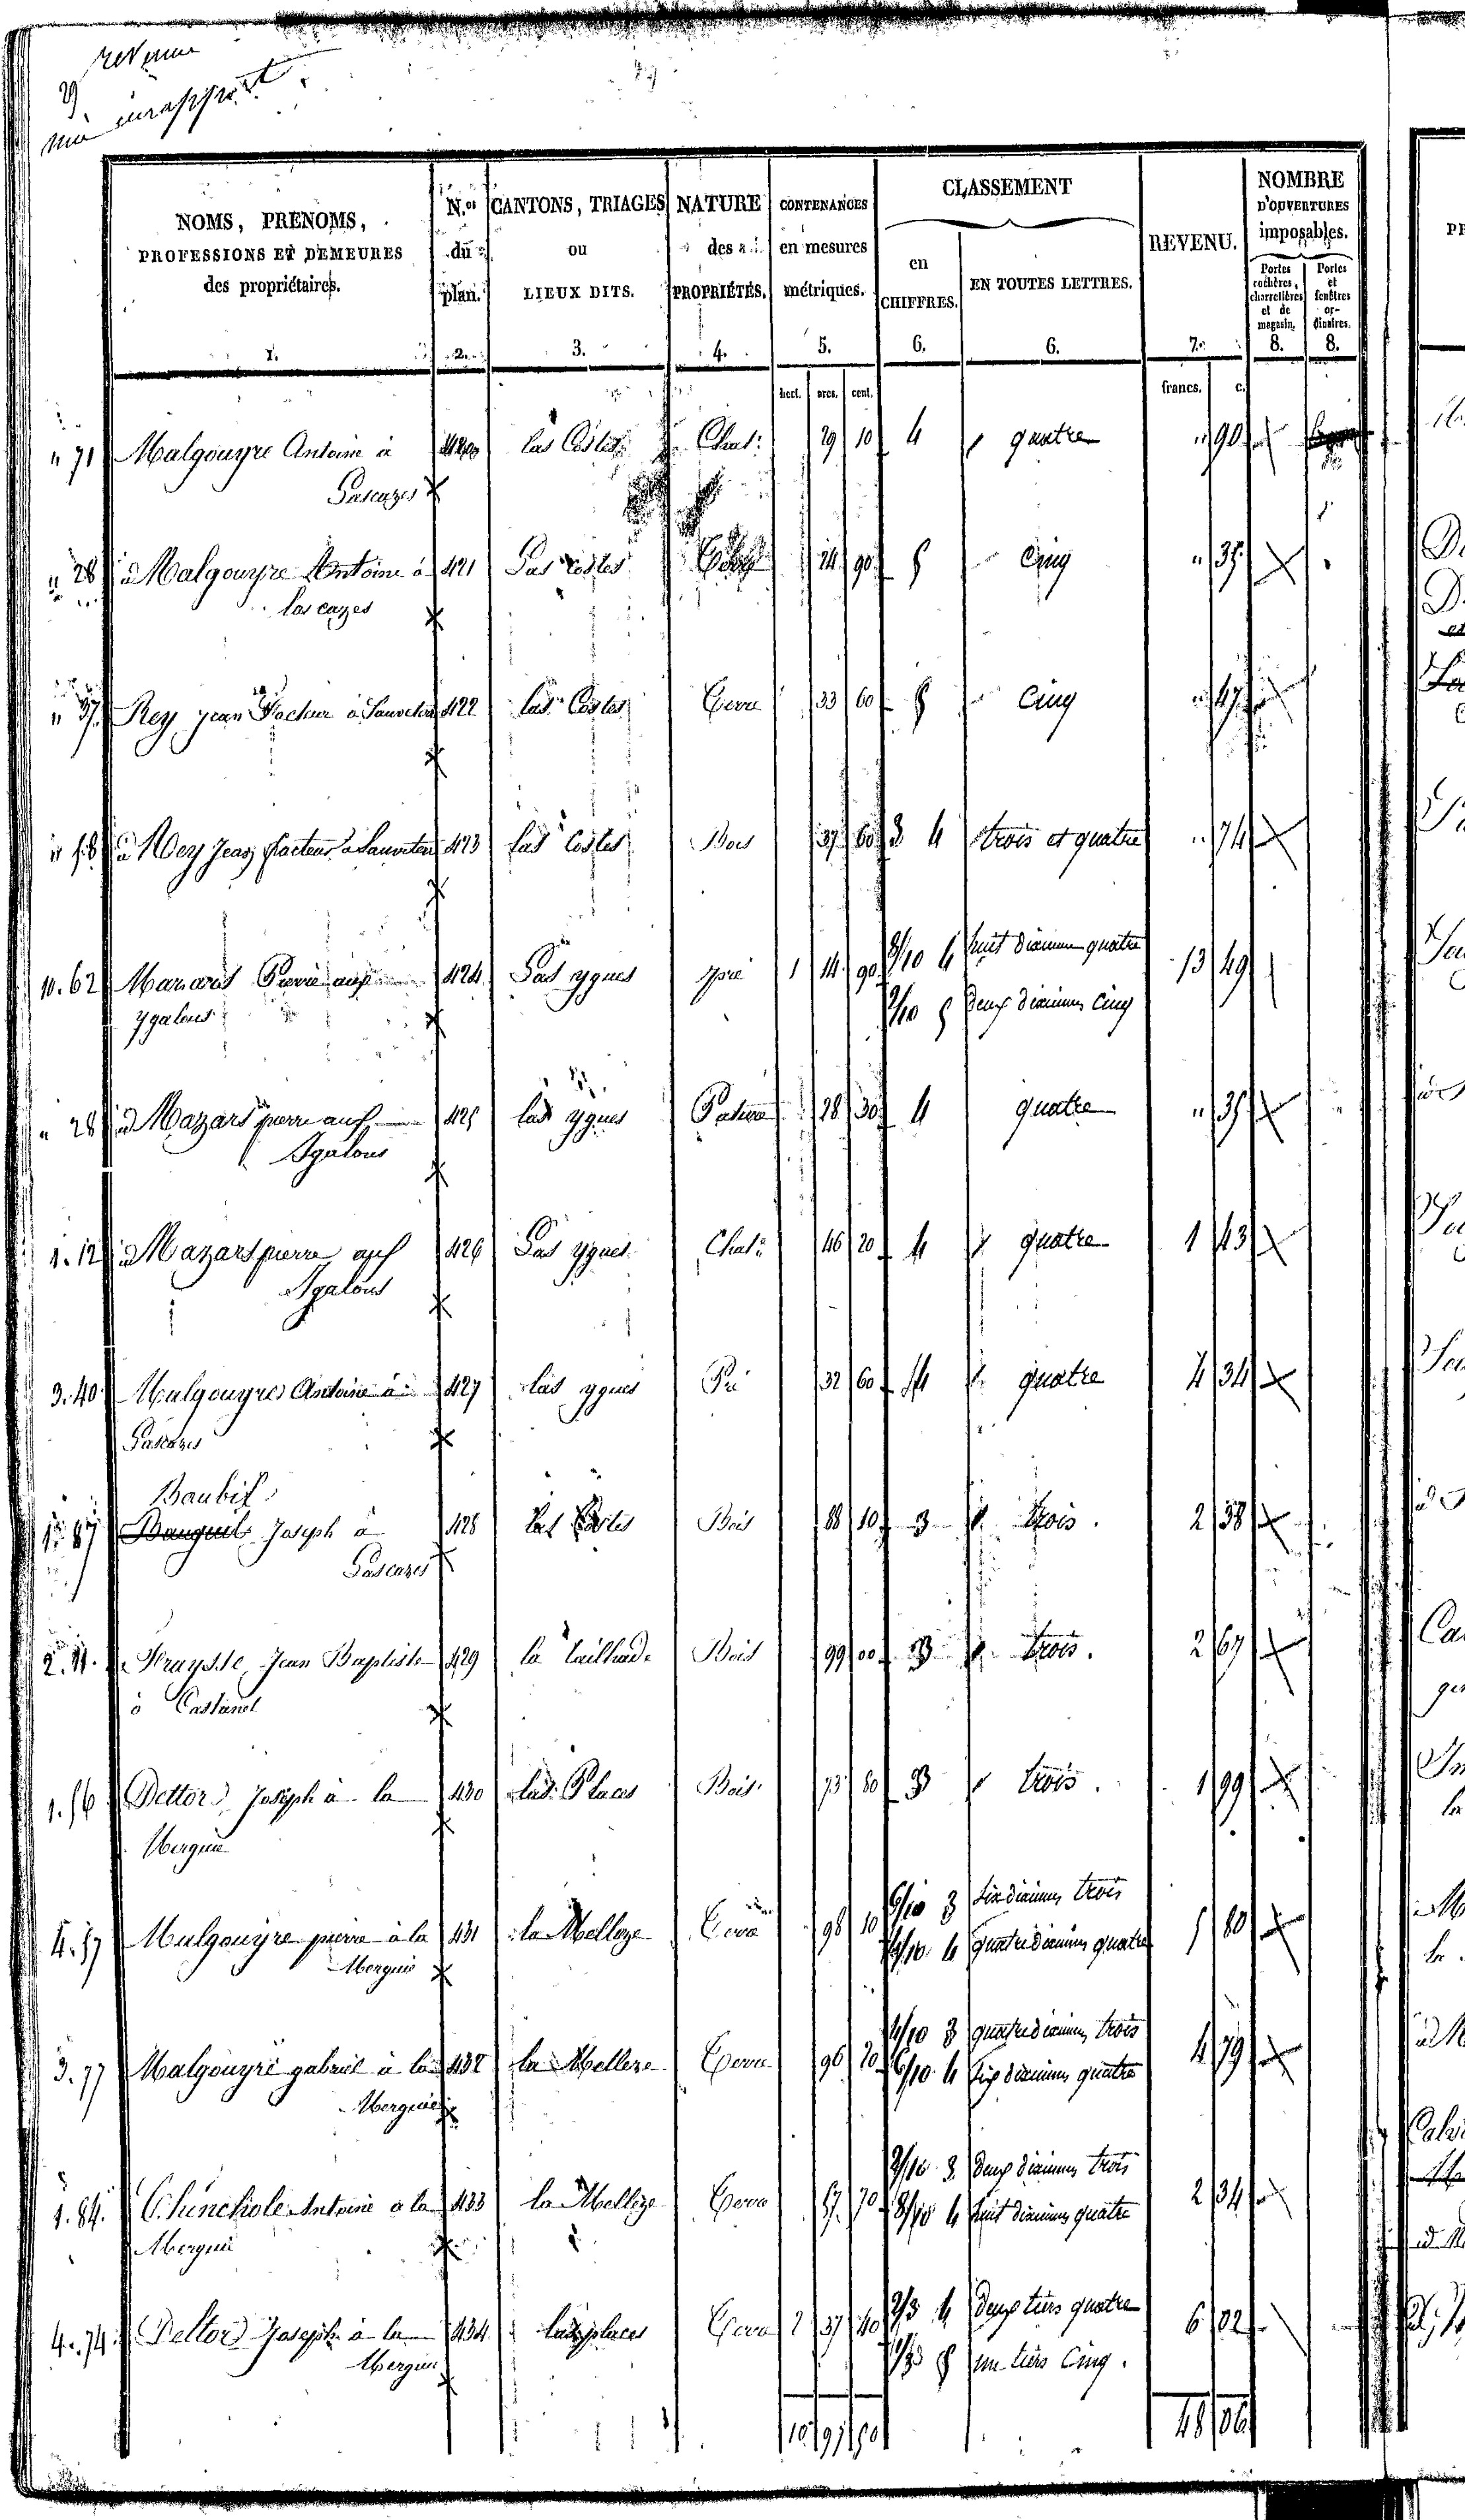 revenu
mis en rapport
NOMS, PRENOMS, PROFESSIONS ET DEMEURES des propriétaires. 1.
N.os du plan. 2.
CANTONS, TRIAGES ou LIEUX DITS. 3.
NATURE des PROPRIÉTÉS. 4.
CONTENANCES en mesures métriques. 5.
CLASSEMENT
en CHIFFRES. 6.
EN TOUTES LETTRES. 6.
REVENU. 7.
NOMBRE D'OUVERTURES imposables.
Portes cochères, charretières et de magasin. 8.
Portes et fenêtres ordinaires. 8.
hect. ares. cent. francs. c.
" 71 Malgouyre Antoine à 420 las Costes Chat: 29 10 4 quatre " 90
Lascazes
" 28 id Malgouyre Antoine à 421 Las Costes 24 90 5 Cinq " 35
las cazes
" 37 Rey Jean Facteur à Sauveterre 422 las Costes Terre 33 60 5 Cinq " 47
" 58 id Rey Jean facteur à Sauveterre 423 las Costes Bois 37 60 3 4 trois et quatre " 74
10. 62 Mazars Pierre aux 424 Las ygues pré 1 14 90 8/10 4 huit dixièmes quatre 13 49
ygalous 2/10 5 deux dixièmes Cinq
" 28 id Mazars pierre aux 425 las ygues Pature 28 30 4 quatre " 35
Igalous
1. 12 id Mazars pierre aux 426 Las ygues Chat: 46 20 4 quatre 1 43
Igalous
3. 40 Malgouyre Antoine à 427 las ygues Pré 32 60 4 quatre 4 34
Lascazes
Baubil
1. 87 Bauguil Joseph à 428 Las Costes Bois 88 10 3 trois. 2 38
Lascazes
2. 11. Fraysse, Jean Baptiste 429 la taillade Bois 99 00 3 trois. 2 67
à Castanet
1. 56 Deltor Joseph à la 430 las Places Bois 73 80 3 trois. 1 99
Merguie
4. 57 Malgouyre pierre à la 431 la Melloze Terre 98 10 6/10 3 six dixièmes trois 5 80
Merguie 4/10. 4 quatre dixièmes quatre
3. 77 Malgouyre gabriel à la 432 la Melleze Terre 96 20 4/10 3 quatre dixièmes trois 4 79
Merguie 6/10. 4 six dixièmes quatre
1. 84. Chinchole Antoine à la 433 la Melleze Terre 57 70 2/10 3. deux dixièmes trois 2 34
Merguie 8/10 4 huit dixièmes quatre
4. 74. Deltor Joseph à la 434 las places Terre 2 37 40 2/3 4 deux tiers quatre 6 02
Merguie 1/3 5 un tiers Cinq.
10 97 50 48 06